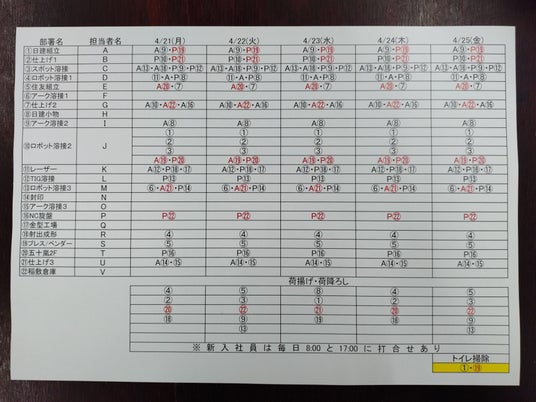 部署名 担当者名 4/21(月) 4/22(火) 4/23(水) 4/24(木) 4/25(金)
①日建組立 A A⑨・P⑲ A⑨・P⑲ A⑨・P⑲ A⑨・P⑲ A⑨・P⑲
②仕上げ1 B P⑩・P㉑ P⑩・P㉑ P⑩・P㉑ P⑩・P㉑ P⑩・P㉑
③スポット溶接 C A⑬・A⑱・P⑨・P⑫ A⑬・A⑱・P⑨・P⑫ A⑬・A⑱・P⑨・P⑫ A⑬・A⑱・P⑨・P⑫ A⑬・A⑱・P⑨・P⑫
④ロボット溶接1 D ⑪・A・P⑧ ⑪・A・P⑧ ⑪・A・P⑧ ⑪・A・P⑧ ⑪・A・P⑧
⑤住友組立 E A⑳・⑦ A⑳・⑦ A⑳・⑦ A⑳・⑦ A⑳・⑦
⑥アーク溶接1 F
⑦仕上げ2 G A⑩・A㉒・A⑯ A⑩・A㉒・A⑯ A⑩・A㉒・A⑯ A⑩・A㉒・A⑯ A⑩・A㉒・A⑯
⑧日建小物 H
⑨アーク溶接2 I A⑧ A⑧ A⑧ A⑧ A⑧
① ① ① ① ①
⑩ロボット溶接2 J ② ② ② ② ②
③ ③ ③ ③ ③
A⑲・P⑳ A⑲・P⑳ A⑲・P⑳ A⑲・P⑳ A⑲・P⑳
⑪レーザー K A⑫・P⑱・⑰ A⑫・P⑱・⑰ A⑫・P⑱・⑰ A⑫・P⑱・⑰ A⑫・P⑱・⑰
⑫TIG溶接 L P⑬ P⑬ P⑬ P⑬ P⑬
⑬ロボット溶接3 M ⑥・A㉑・P⑭ ⑥・A㉑・P⑭ ⑥・A㉑・P⑭ ⑥・A㉑・P⑭ ⑥・A㉑・P⑭
⑭封印 N
⑮アーク溶接3 O
⑯NC旋盤 P P㉒ P㉒ P㉒ P㉒ P㉒
⑰金型工場 Q
⑱射出成形 R ④ ④ ④ ④ ④
⑲プレス/ベンダー S ⑤ ⑤ ⑤ ⑤ ⑤
⑳五十嵐2F T P⑯ P⑯ P⑯ P⑯ P⑯
㉑仕上げ3 U A⑭・⑮ A⑭・⑮ A⑭・⑮ A⑭・⑮ A⑭・⑮
㉒稲敷倉庫 V
荷揚げ・荷降ろし
④ ⑤ ⑧ ④ ⑤
① ② ① ② ①
② ③ ③ ② ③
⑳ ㉒ ㉑ ⑳ ㉒
⑱ ⑨ ⑲ ⑱ ⑨
⑬ ⑬
※ 新入社員は毎日 8:00 と 17:00 に打合せあり
トイレ掃除
①・⑲